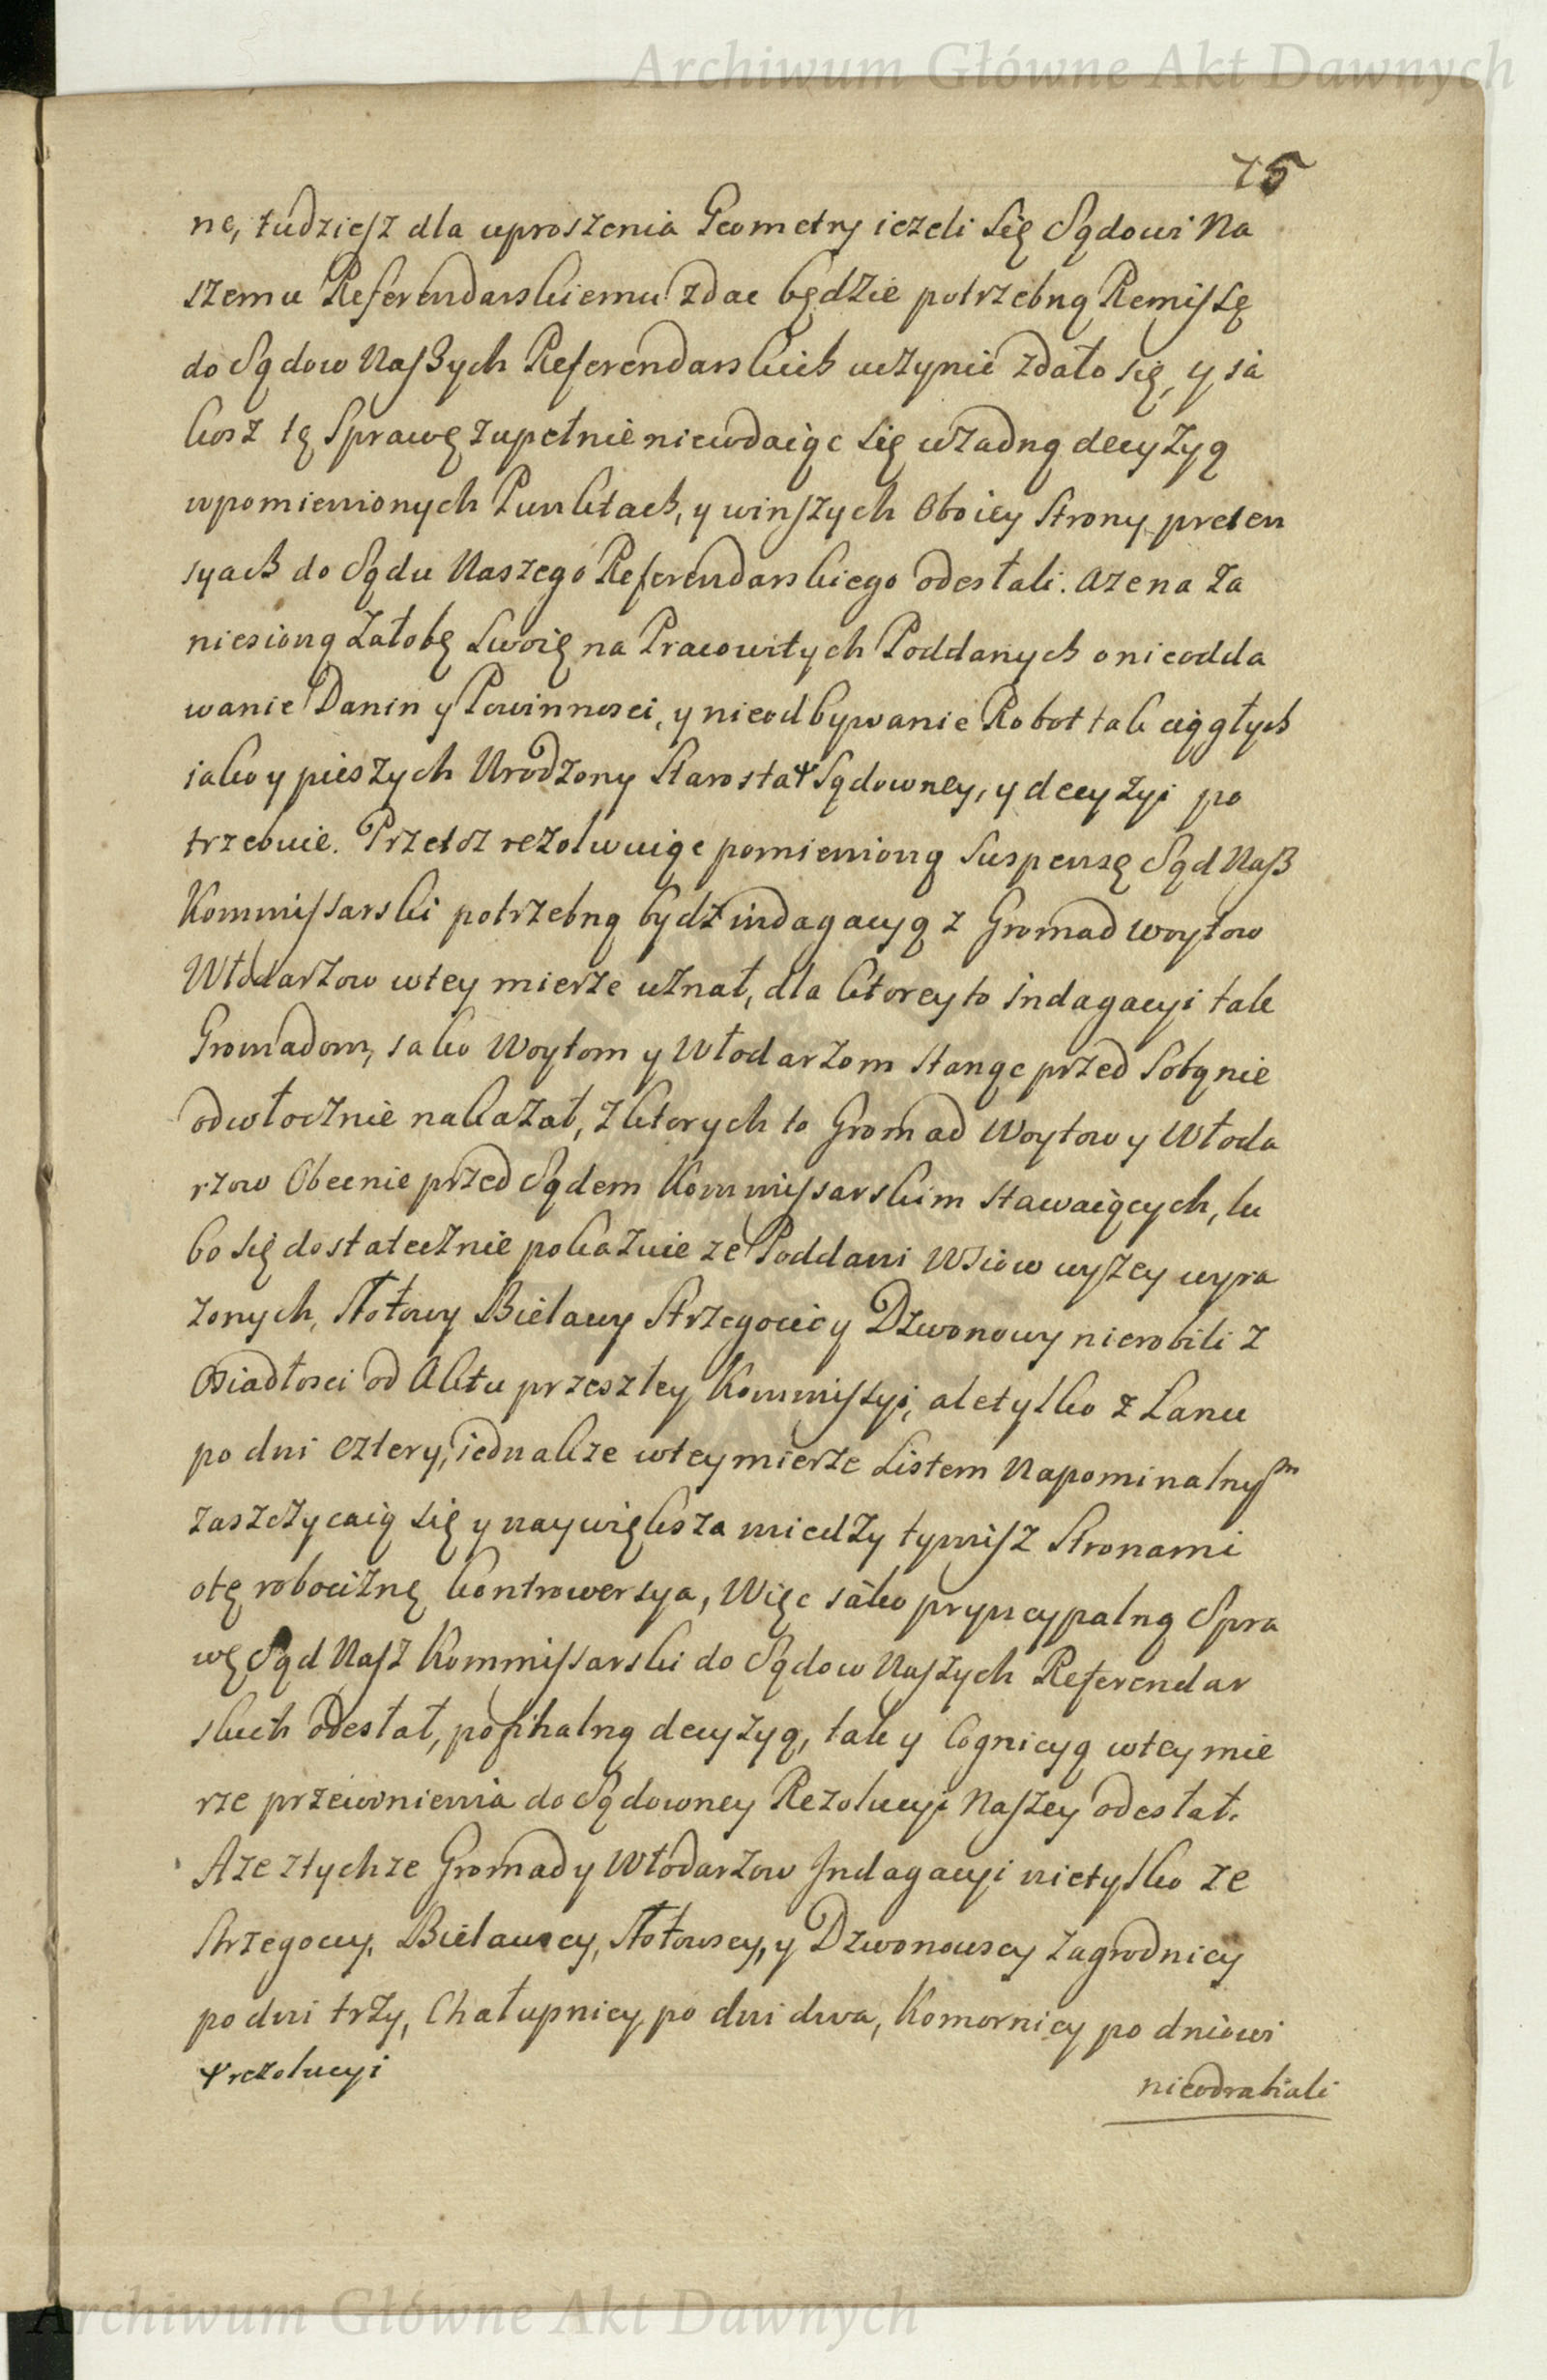 Archiwum Główne Akt Dawnych
75
ne, tudziesz dla uproszenia Geometry iezeli się Sądowi Na
szemu Referendarskiemu zdac będzie potrzebną Remissę
do Sądow Naszych Referendarskich uczynić zdało się, y ia
kosz tę Sprawę zupełnie niewdaiąc się wżadną decyzyą
wpomienionych Punktach, y winszych Oboiey Strony preten
syach do Sądu Naszego Referendarskiego odesłali. Aze na Za
niesioną Załobę Swoię na Pracowitych Poddanych o nieodda
wanie Danin y Powinnosci, y nieodbywanie Robot tak ciągłych
iako y pieszych Urodzony Starosta Ψ Sądowney, y decyzyi po
trzebuie. Przetoz rezolwuiąc pomienioną Suspensę Sąd Nasz
Kommissarski potrzebną bydz indagacyą z Gromad Woytow
Włodarzow wtey mierze uznał, dla ktorey to indagacyi tak
Gromadom, iako Woytom y Włodarzom stanąc przed Sobą nie
odwłocznie nakazał, z ktorych to Gromad Woytow y Włoda
rzow Obecnie przed Sądem Kommissarskim stawaiących, lu
bo się dostatecznie pokazuie ze Poddani Wsiow wyzey wyra
zonych, Stołowy Bielawy Strzegocic y Dzwonowy nierobili z
Osiadłosci od Aktu przeszłey Kommissyi, ale tylko z Łanu
po dni cztery, iednakze wtey mierze Listem Napominalnym
zaszczycaią się y naywiększa miedzy tymisz Stronami
otę robociznę kontrowersya, Więc iako pryncypalną Spra
wę Sąd Nasz Kommissarski do Sądow Naszych Referendar
skich odesłał, po finalną decyzyą, tak y Cognicyą wtey mie
rze przewinienia do Sądowney Rezolucyi Naszey odesłał.
Aze ztychze Gromad y Włodarzow Indagacyi nietylko ze
Strzegoccy, Bielawscy, Stołowscy, y Dzwonowscy Zagrodnicy
po dni trzy, Chałupnicy po dni dwa, Komornicy po dniowi
Ψ rezolucyi
nieodrabiali
Archiwum Główne Akt Dawnych